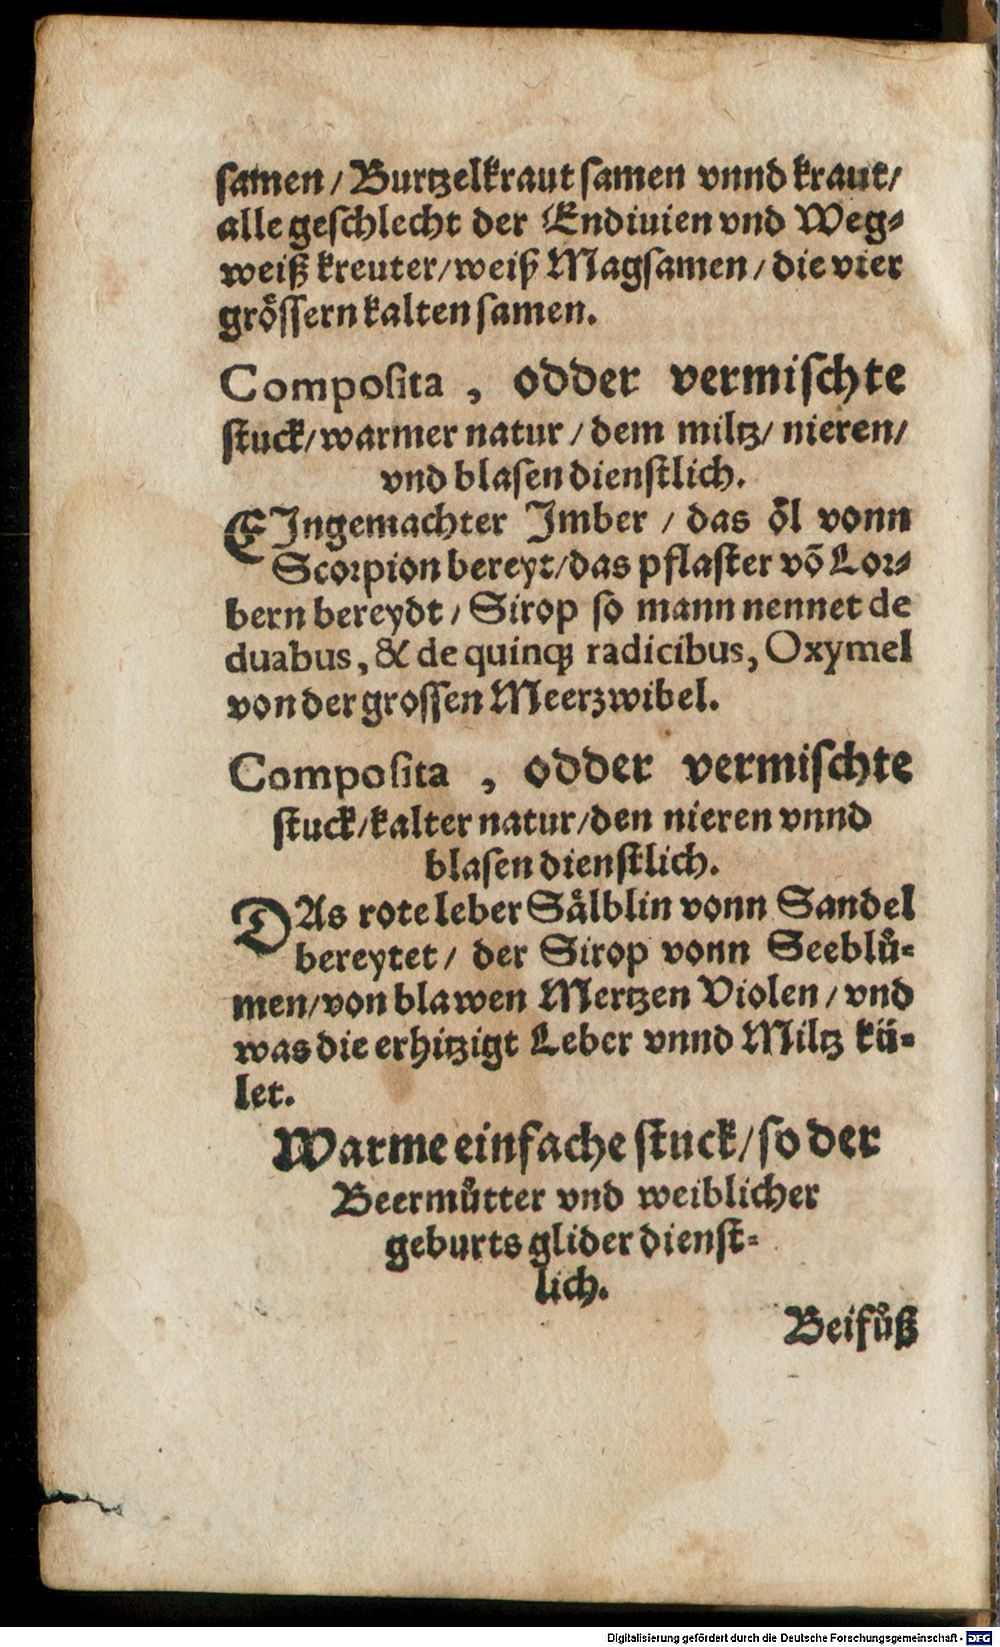 samen / Burtzelkraut samen vnnd kraut /
alle geschlecht der Endiuien vnd Weg⸗
weiß kreuter / weiß Magsamen / die vier
groͤssern kalten samen.
Composita , odder vermischte
stuck / warmer natur / dem miltz / nieren /
vnd blasen dienstlich.
EJngemachter Jmber / das oͤl vonn
Scorpion bereyt / das pflaster võ Lor⸗
bern bereydt / Sirop so mann nennet de
duabus, & de quinqꝫ radicibus, Oxymel
von der grossen Meerzwibel.
Composita , odder vermischte
stuck / kalter natur / den nieren vnnd
blasen dienstlich.
DAs rote leber Saͤlblin vonn Sandel
bereytet / der Sirop vonn Seebluͦ⸗
men / von blawen Mertzen Violen / vnd
was die erhitzigt Leber vnnd Miltz kü⸗
let.
Warme einfache stuck / so der
Beermuͤtter vnd weiblicher
geburts glider dienst⸗
lich.
Beifuͦß
Digitalisierung gefördert durch die Deutsche Forschungsgemeinschaft - DFG